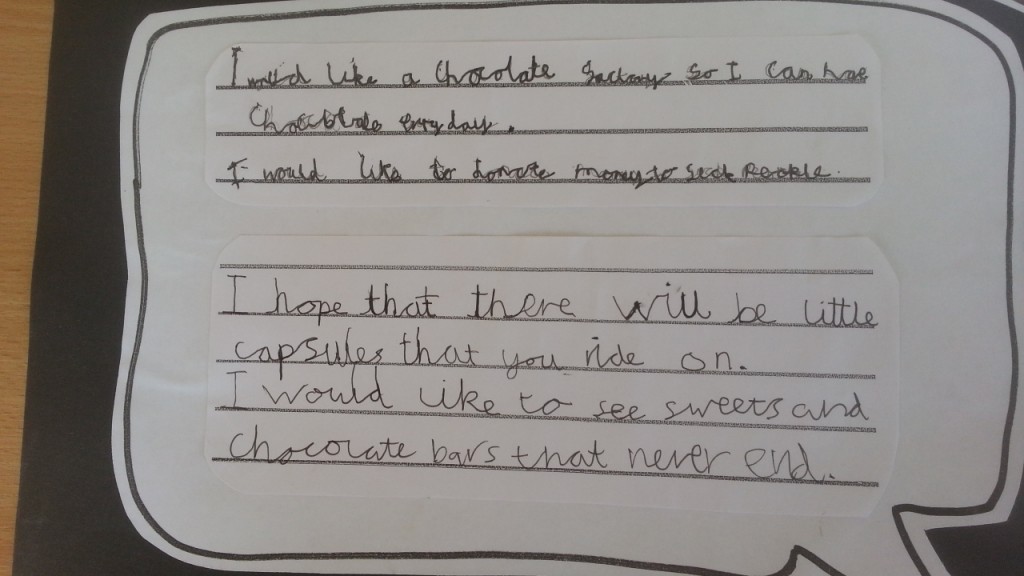 I would like a chocolate factory so I can have
Chocolate everyday.
I would like to donate money to sick people.
I hope that there will be little
capsules that you ride on.
I would like to see sweets and
chocolate bars that never end.